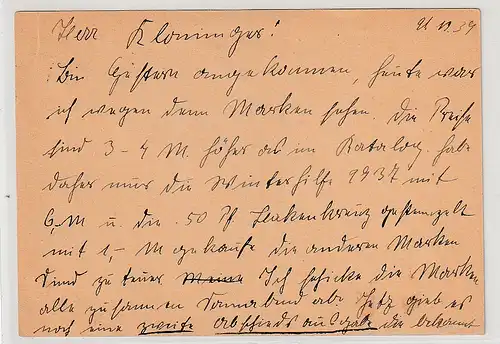 Herr Kloninger! 21 11 39
Bin Gestern angekommen, heute war
ich wegen denn Marken sehen. Die Preise
sind 3-4 M. höher als im Katalog. habe
daher nur die Winterhilfe 1937 mit
6,M u. die .50 Pf. Hakenkreuz gestempelt
mit 1,- M gekauft die anderen Marken
sind zu teuer Ich schicke die Marken
alle zusammen Sonnabend ab. Jetz gieb es
noch eine zweite Abschieds ausgabe die bekommt